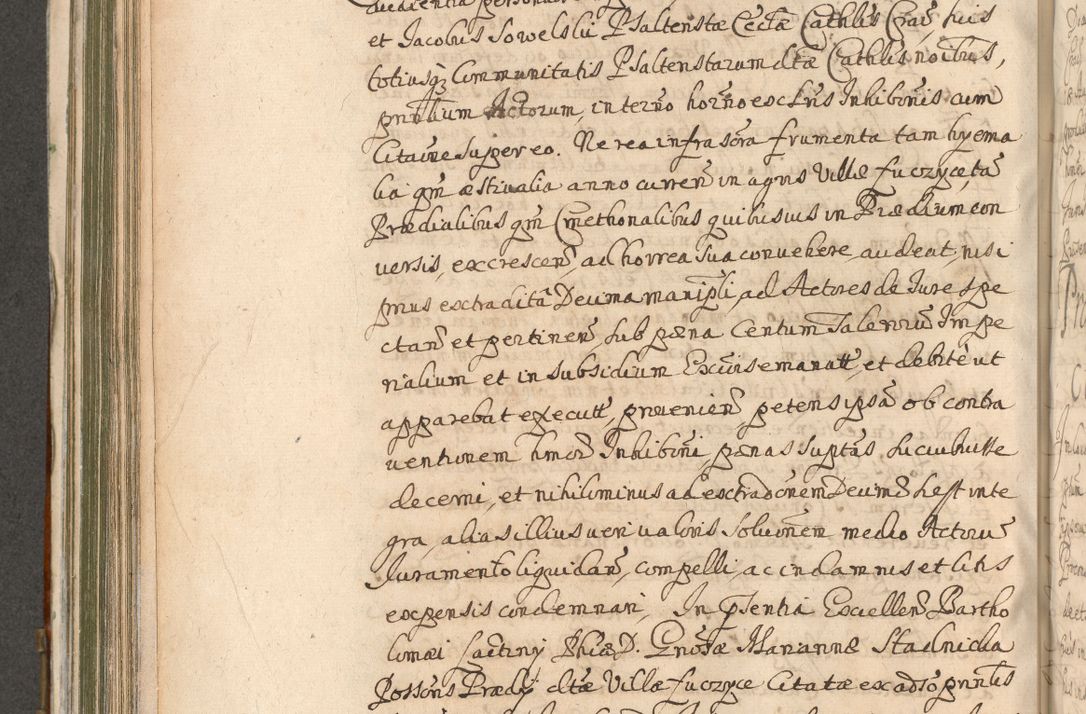 et Jacobus Sowelski Psaltenstæ Ecctæ Cathlis Crac̃, huis
totiusq̃ Communitatis Psaltenstarum dtæ Cathlis noĩbus,
pñtium Actorum, in termo horño ex cẽns Inhibõnis cum
Citaõne super eo. Ne rea infra sõra frumenta tam hyema
lia qm̃ æstivalia anno curreñ in agris Villæ Łuczyce, tã
Prædialibus qm̃ Cmethonalibus quibusvis in Prædium con
versis, excresceñ, ad horrea sua convehere audeat, nisi
prius extradita Decima manipli, ad Actores de Jure spe
ctañ et pertineñ sub pæna Centum Talerorũ Impe
rialium et in subsidium Excõis emanatt, et debitè ut
apparebat executt, provenieñ, petens ipsã ob contra
ventionem hmõi Inhibõni, pænas suptãs luciubuisse
decerni, et nihilominus ad extradõnem Decimæ hess inte
gra, alias illius veri valoris solutõnem medio Actorũ
Juramento liquidañ, compelli, ac in damnis et litis
expensis condemnari, In pr̃sentia Excelleñ Bartho
lomæi Łactiny Phiæ D. Gnosæ Mariannæ Stadnicka
Possoris Prædij dtæ Villæ Łuczyce Citatæ ex adsõ prñtis